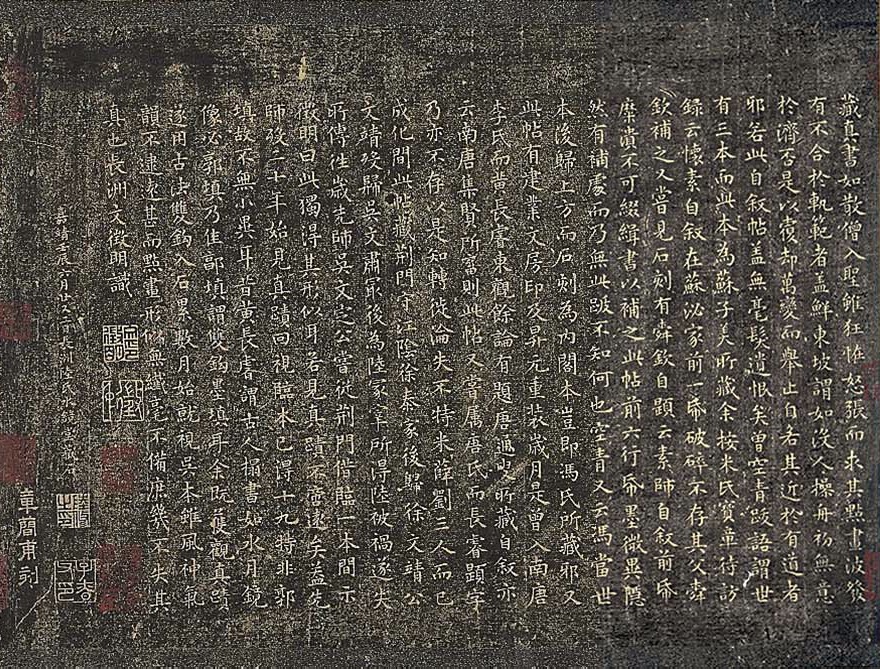 藏真書如散僧入聖雖狂怪怒張而求其點畫波發
有不合於軌範者蓋鮮東坡謂如沒人操舟初無意
於濟否是以覆却萬變而舉止自若其近於有道者
邪若此自敘帖蓋無毫髮遺恨矣曾空青跋語謂世
有三本而此本為蘇子美所藏余按米氏寶章待訪
錄云懷素自敘在蘇泌家前一帋破碎不存其父舜
欽補之又嘗見石刻有舜欽自題云素師自敘前帋
糜潰不可綴緝書以補之此帖前六行帋墨微異隱
然有補處而乃無此跋不知何也空青又云馮當世
本後歸上方而石刻為內閣本豈即馮氏所藏邪又
此帖有建業文房印及昇元重裝歲月是曾入南唐
李氏而黃長睿東觀餘論有題唐通叟所藏自敘亦
云南唐集賢所畜則此帖又嘗屬唐氏而長睿題字
乃亦不存以是知轉徙淪失不特米薛劉三人而已
成化間此帖藏荊門守江陰徐泰家後歸徐文靖公
文靖歿歸吳文肅最後為陸冢宰所得陸被禍遂失
所傳往歲先師吳文定公嘗從荊門借臨一本間示
徵明曰此獨得其形似耳若見真蹟不啻遠矣蓋先
師歿二十年始見真蹟回視臨本已得十九特非郭
填故不無小異耳昔黃長睿謂古人搨書如水月鏡
像必郭填乃佳郭填謂雙鈎墨填耳余既獲觀真蹟
遂用古法雙鈎入石累數月始就視吳本雖風神氣
韻不逮遠甚而點畫形似無纖毫不備庶幾不失其
真也長洲文徵明識
嘉靖壬辰六月廿日長洲陸氏水鏡堂
章簡甫刻